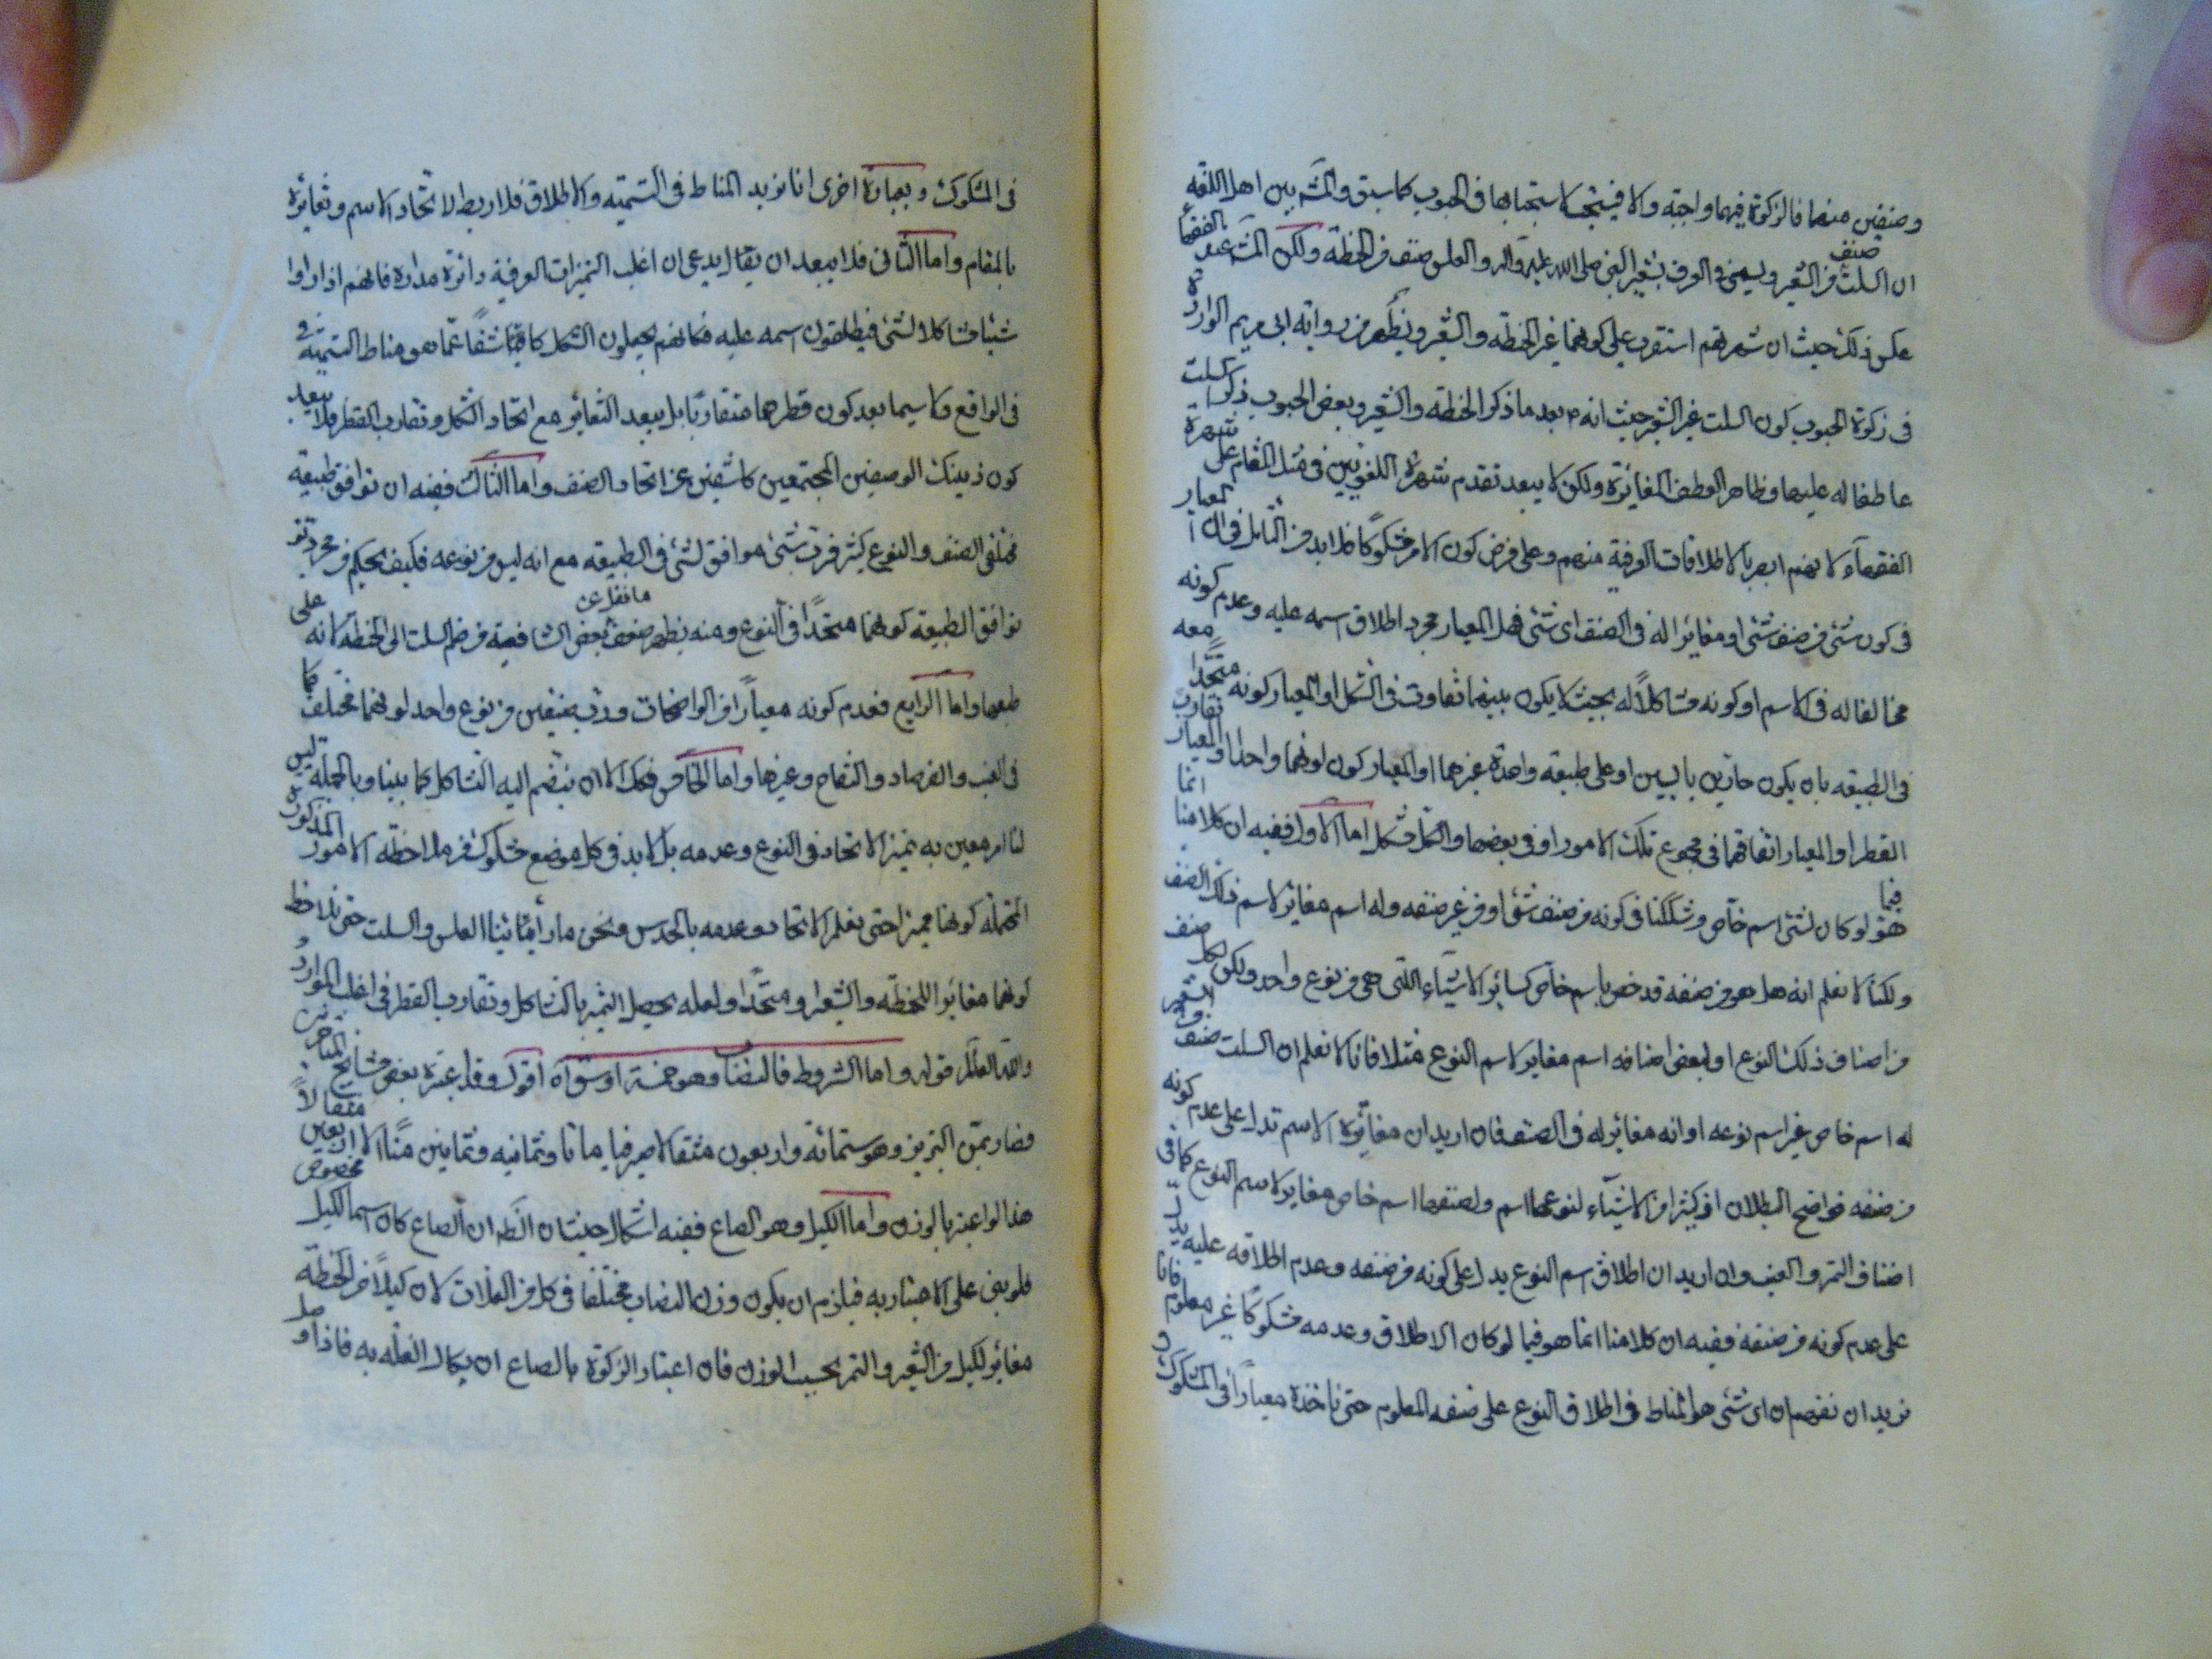 وصنفين منهما فالزكوة فيهما واجبة والا فيستحب لاستحبابها فى الحبوب كما سبق والمش بين اهل اللغة
ان السلت صنف من الشعير ويسمى فى العرف بشعير النبى صلى الله عليه واله والعلس صنف من الحنطة ولكن المش عند الفقهاء
عكس ذلك حيث ان شهرتهم استقرت على كونهما غير الحنطة والشعير ويظهر من رواية ابى مريم الواردة
فى زكوة الحبوب كون السلت غير الشعير حيث انه بعد ما ذكر الحنطة والشعير وبعض الحبوب ذكر السلت
عاطفا له عليها وظاهر العطف المغايرة ولكن لا يبعد تقدم شهرة اللغويين فى مثل المقام على شهرة
الفقهآء لانهم ابصر بالاطلاقات العرفية منهم وعلى فرض كون الامر مشكوكا فلا بد من التامل فى ان المعيار
فى كون شئ من صنف شئ او مغايرا له فى الصنف اى شئ فهل المعيار مجرد اطلاق اسمه عليه وعدم كونه
مخالفا له فى الاسم او كونه مشاكلاً له بحيث لا يكون بينهما تفاوت فى الشكل او المعيار كونه متحدا معه
فى الطبيعة بان يكون حارين يابسين او على طبيعة واحدة غيرهما او المعيار كون لونهما واحدا او المعيار تقارب
القطر او المعيار اتفاقهما فى مجموع تلك الامور او فى بعضها والكل مشكل اما الاول ففيه ان كلامنا انما
هو فيما لو كان لشئ اسم خاص وشككنا فى كونه من صنف شئ او من غير صنفه وله اسم مغاير لاسم ذلك الصنف
ولكنا لا نعلم انه هل هو من صنفه قد خص باسم خاص كسائر الاشيآء التى هى من نوع واحد ولكن لكل صنف
من اصناف ذلك النوع او لبعض اصنافه اسم مغاير لاسم النوع مثلا فانا لا نعلم ان السلت صنف من الشعير و
له اسم خاص غير اسم نوعه او انه مغاير له فى الصنف فان اريد ان مغايرة الاسم تدل على عدم كونه
من صنفه فواضح البطلان اذ كثير من الاشيآء لنوعها اسم ولصنفها اسم خاص مغاير لاسم النوع كما فى
اصناف التمر والعنب وان اريد ان اطلاق اسم النوع يدل على كونه من صنفه وعدم اطلاقه عليه يدل
على عدم كونه من صنفه ففيه ان كلامنا انما هو فيما لو كان الاطلاق وعدمه مشكوكا غير معلوم فانا
نريد ان نفهم ان اى شئ هو المناط فى اطلاق النوع على صنفه المعلوم حتى ناخذه معياراً فى المشكوك و
فى المشكوك وبعبارة اخرى انا نريد المناط فى التسمية والاطلاق فلا ربط لاتحاد الاسم وتغايره
بالمقام واما الثانى فلا يبعد ان يقال بدعى ان اغلب التميزات العرفية دائرة مداره فانهم اذا راوا
شيئا مشاكلا لشئ فيطلقون اسمه عليه فكانهم يجعلون الشكل كاشفاً عما هو مناط التسمية
فى الواقع ولا سيما بعد كون قطرهما متقاربا بل يبعد التغاير مع اتحاد الشكل وتقارب القطر فلا يبعد
كون ذينك الوصفين المجتمعين كاشفين عن اتحاد الصنف واما الثالث ففيه ان توافق طبيعة
مختلفى الصنف والنوع كثير فرب شئ موافق لشئ فى الطبيعة مع انه ليس من نوعه فكيف يحكم من مجرد
توافق الطبيعة كونهما متحداً فى النوع ومنه يظهر ضعف ما نقل عن بعض الشافعية من ضم السلت الى الحنطة لانه على
طبعها واما الرابع فعدم كونه معياراً من الواضحات ورب صنفين من نوع واحد لونهما مختلف كما
فى العنب والفرصاد والتفاح وغيرها واما الخامس فكك الا ان ينضم اليه التشاكل كما بينا وبالجملة ليس
لنا امر معين به يتميز الاتحاد فى النوع وعدمه بل لا بد فى كل موضع مشكوك من ملاحظة الامور المذكورة
المحتملة كونها مميزا حتى نعلم الاتحاد وعدمه بالحدس ونحن ما رأينا العلس والسلت حتى نلاحظ
كونهما مغايرا للحنطة والشعير او متحدا ولعله يحصل التميز بالتشاكل وتقارب القطر فى اغلب الموارد و
والله العالم قوله واما الشروط فالنصاب وهو خمسة اوسق آه اقول وقد اعتبره بعض مشايخ المتاخرين
فصار بمن التبريز وهو ستمائة واربعون مثقالا صيرفيا مأتا وثمانيه وثمانين منًا الا اربعين مثقالاً
هذا لو اعتبر بالوزن واما الكيل وهو الصاع ففيه اشكال حيث ان الظ ان الصاع كان اسما لكيل مخصوص
فلو بنى على الاعتبار به فيلزم ان يكون وزن النصاب مختلفا فى كل من الغلات لان كيلاً من الحنطة
مغاير لكيل من الشعير والتمر بحسب الوزن فان اعتبار الزكوة بالصاع ان يكال الغلة به فاذا وصل